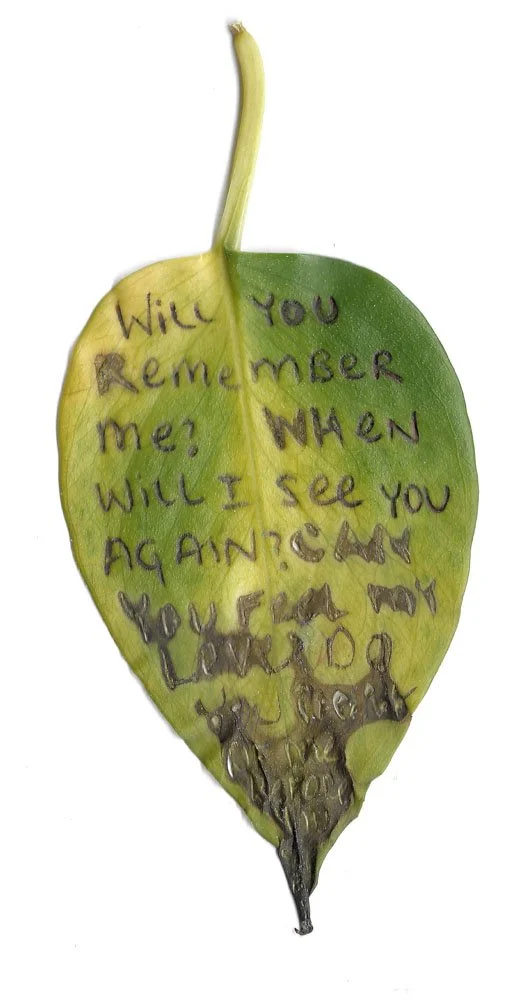 WiLL YOU
RemeMBeR
me? WHeN
WiLL I See YOU
AGAIN? CAN
YOU FeeL MY
LOVe? DO